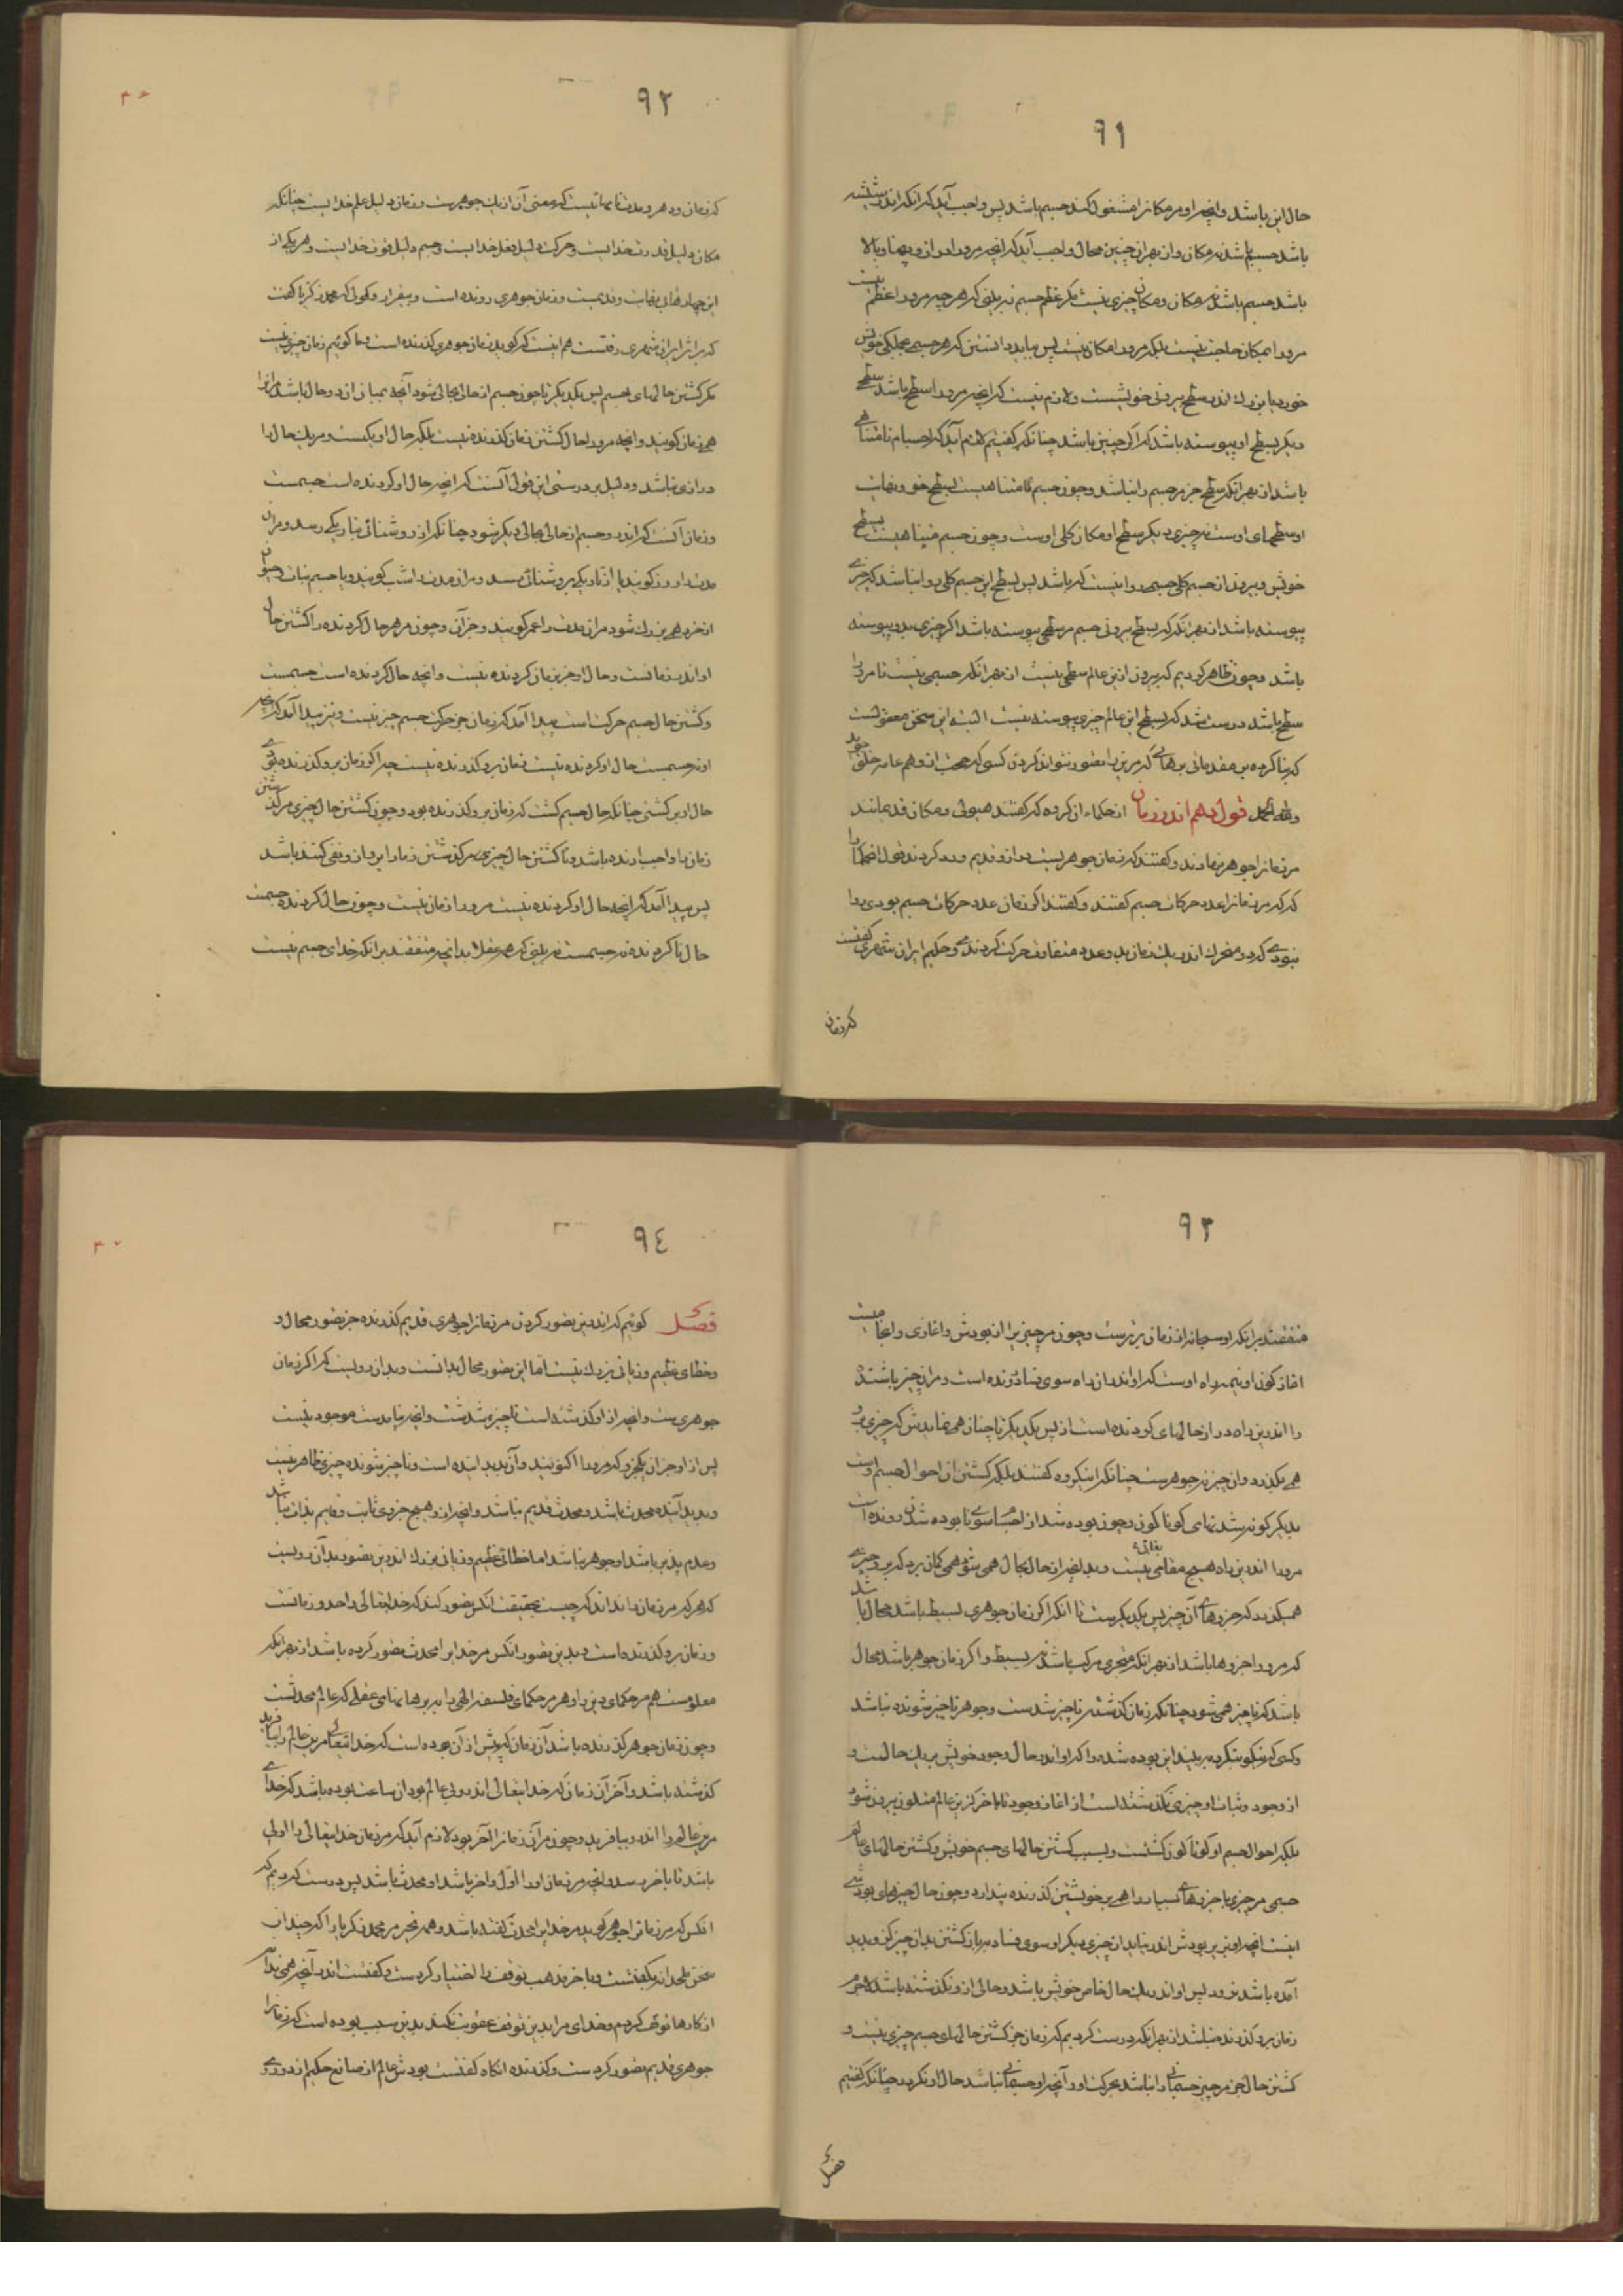 ۹۱
حال این باشد و آنچه او مر مکان را مشغول کند جسم باشد پس واجب آید که آنکه اندر شیشه
باشد جسم باشد نه مکان و از بهر این چنین محال واجب آید که آنچه مرو را درازا و پهنا و بالا
باشد جسم باشد نه مکان و مکان چیزی نیست مگر عظم جسم نه بلینی که هر چه مرو را عظم نیست
مرورا بمکان حاجت نیست بلکه مرورا مکان نیست پس بباید دانستن که هر جسمی بجملگی خویش
خورد یا بزرگ اندر سطح بیرونی خویشست و لازم نیست که آنچه مرورا سطح باشد سطح
دیگر بسطح او پیوسته باشد که اگر چنین باشد چنانکه گفتیم لازم آید که اجسام نامتناهی
باشد از بهر آنکه سطح جز مر جسم را نباشد و چون جسم نامتناهیست بسطح خود و نهایت
او سطحهای اوست نه چیزی دیگر سطح او مکان کلی اوست و چون جسم متناهیست بسطح
خویش و بیرون از جسم کلی جسمی روا نیست که باشد پس بسطح این جسم کلی روا نباشد که چیزی
پیوسته باشد از بهر آنکه که بسطح بیرونی جسم مر سطحی پیوسته باشد اگر چیزی بدو پیوسته
باشد و چون ظاهر کردیم که بیرون از این عالم سطحی نیست از بهر آنکه جسمی نیست تا مرورا
سطح باشد درست شد که بسطح این عالم چیزی پیوسته نیست البته این سخن معقولست
که بنا کرده بر مقدماتی برهانی که مرین را تصور نتواند کردن کسی که صحبت او هم عامه خلق جوید
ولله الحمد قول دهم اندر زمان از حکماء آن گروه که گفتند هیولی و مکان قدیمانند
مر زمان را جوهر نهادند و گفتند که زمان جوهریست دراز و قدیم و رد کردند قول آن حکما را
که مر زمان را عدد حرکات جسم گفتند و گفتند اگر زمان عدد حرکات جسم بودی روا
نبودی که دو متحرک اندر یک زمان بدو عدد متفاوت حرکت کردندی و حکیم ایران شهری گفتست
که زمان
۹۲
که زمان و دهر و مدت نامهائیست که معنی آن از یک جوهرست و زمان دلیل علم خدایست چنانکه
مکان دلیل قدرت خدایست و حرکت دلیل فعل خدایست و جسم دلیل قوت خدایست و هر یکی از
این چهار بی‌نهایت و قدیمست و زمان جوهری رونده است و بیقرار و قولی که محمد زکریا گفت
که بر اثر ایران شهری رفتست هم اینست که گوید زمان جوهری گذرنده است و ما گوئیم زمان چیزی نیست
مگر گشتن حالهای جسم پس یکدیگر تا چون جسم از حالی بحالی شود آنچه بمیان آن دو حال باشد مر آنرا
همی زمان گویند و آنچه مرورا حال گشتن زمان گذرنده نیست بلکه حال او یکیست و مر یک حال را
درازی نباشد و دلیل بر درستی این قول آنست که آنچه حال او گردنده است جسمست
و زمان آنست که اندرو جسم از حالی بحالی دیگر شود چنانکه از روشنائی بتاریکی رسد و مر آن
مدت را روز گویند یا از تاریکی بروشنائی رسد و مر آن مدت را شب گویند و یا جسم نبات و حیوان
از خردی بزرگ شود مر آن مدت را عمر گویند و جز آن و چون مر هر حال گردنده را گشتن حال
او اندر زمانست و حال او جز بزمان گردنده نیست و آنچه حال گردنده است جسمست
و گشتن حال جسم حرکت است پیدا آمد که زمان جز حرکت جسم چیزی نیست و نیز پیدا آمد که آنچه
او نه جسمست حال او گردنده نیست زمان برو گذرنده نیست چه اگر زمان برو گذرنده بودی
حال او برگشتی چنانکه حال جسم گشت که زمان برو گذرنده بود و چون گشتن حال چیزی مر گذشتن
زمان را واجب آرنده باشد ناگشتن حال چیزی مر گذشتن زمان را بر آن نفی کننده باشد
پس پیدا آمد که آنچه حال او گردنده نیست مرورا زمان نیست و چون حال گردنده جسمست
حال ناگردنده نه جسمست نه بلینی که همه عقلا بدانچه متفقند بر آنکه خدای جسم نیست
۹۳
متفقند بر آنکه او سبحانه از زمان برترست و چون مر چیزی را از بودش و اغازی و انجامیست
اغاز کون او نیمه راه اوست که او اندر آن راه سوی فساد رونده است و مر آن چیز باشنده
را اندرین راه دراز حالهای گردنده است از پس یکدیگر تا چنان همی نمایدش که چیزی برو
همی بگذرد و آن چیز نه جوهرست چنانکه این گروه گفتند بلکه گشتن از احوال جسم اوست
بدیگر گونه شدنهای گوناگون و چون بوده شد از سوی نابوده شدن رونده است
مرورا اندرین راه هیچ مقامی بقائی نیست و بدانچه از حال بحال همی شود همی گمان برد که برو چیزی
همیگذرد که جزوهای آن چیز پس یکدیگرست تا آنکه اگر زمان جوهری بسیط باشد محال باشد
که مرورا جزوها باشد از بهر آنکه متجزی مرکب باشد نه بسیط و اگر زمان جوهر باشد محال
باشد که ناچیز همی شود چنانکه زمان گذشته ناچیز شدست و جوهر ناچیز شونده نباشد
و کسی که نیکو بنگرد ببیند این بوده شده را که او اندر حال وجود خویش بر یک حالست و
از وجود و ثبات او چیزی نگذشته است از اغاز وجود تا باخر کزین عالم متلون بیرون شود
بلکه احوال جسم او گوناگون گشتست و بسبب گشتن حالهای جسم خویش و گشتن حالهای عالم
جسمی مر چیزی با جزوهای بسیار را همی بر خویشتن گذرنده پندارد و چون حال چیزهای بودشی
اینست آنچه او نیز بر بودش اندر نیاید از چیزی دیگر او سوی فساد نه بازگشتن بدان چیز کزو پدید
آمده باشد نرود پس او اندر یک حال خاص خویش باشد و حالی ازو نگذشته باشد لاجرم
زمان برو گذرنده نباشد از بهر آنکه درست کردیم که زمان جز گشتن حالهای جسم چیزی نیست و
گشتن حال جز مر چیز جسمانی را نباشد بحرکت او و آنچه او جسمانی نباشد حال او نگردد چنانکه گفتیم
فصل
۹٤
فصل گوئیم که اندرین تصور کردن مر زمان را جوهری قدیم گذرنده جز تصور محال و
خطای عظیم و زیانی بزرگ نیست اما این تصور محال بدانست و بدان رویست که اگر زمان
جوهری ست و آنچه از او گذشته است ناچیز شدست و آنچه نیامدست موجود نیست
پس از او جز آن یکجزو که مرورا اکنون گویند و آن پدید اینده است و ناچیز شونده چیزی ظاهر نیست
و پدید آینده محدث باشد و محدث قدیم نباشد و آنچه ازو هیچ جزوی ثابت و قایم بذات نباشد
و عدم پذیر باشد او جوهر نباشد اما خطائی عظیم و زیانی بزرگ اندرین تصور بدان رویست
که هر که مر زمان را نداند که چیست بحقیقت آنکس تصور کند که خدایتعالی را حد و زمانست
و زمان برو گذرنده است و بدین تصور آنکس مر خدایرا محدث تصور کرده باشد از بهر آنکه
معلومست هم مر حکمای دین را و هم مر حکمای فلسفه الهی را ببرهانهای عقلی که عالم محدثست
و چون زمان جوهر گذرنده باشد آن زمان که پیش از آن بوده است که خدایتعالی مرین عالم را بیافرید
گذشته باشد و آخر آن زمان که خدایتعالی اندرو بی عالم بود آن ساعت بوده باشد که خدای
مرین عالم را اندرو بیافرید و چون مر آن زمان را آخر بود لازم آید که مر زمان خدایتعالی را اولی
باشد تا بآخر رسد و آنچه مر زمان او را اول و آخر باشد او محدث باشد پس درست کردیم که
آنکس که مر زمان را جوهر گوید مر خدایرا محدث گفته باشد و همه تحیر مر محمد زکریا را که چندان
سخن ملحدانه بگفتست و بآخر مذهب توقف را اختیار کردست و گفتست اندر آنچه همی ندانم
از کارها توقف کردم و خدای مرا بدین توقف عقوبت نکند بدین سبب بوده است که زمان را
جوهری قدیم تصور کردست و گذرنده آنگاه گفتست بودش عالم از صانع حکیم از دو روی